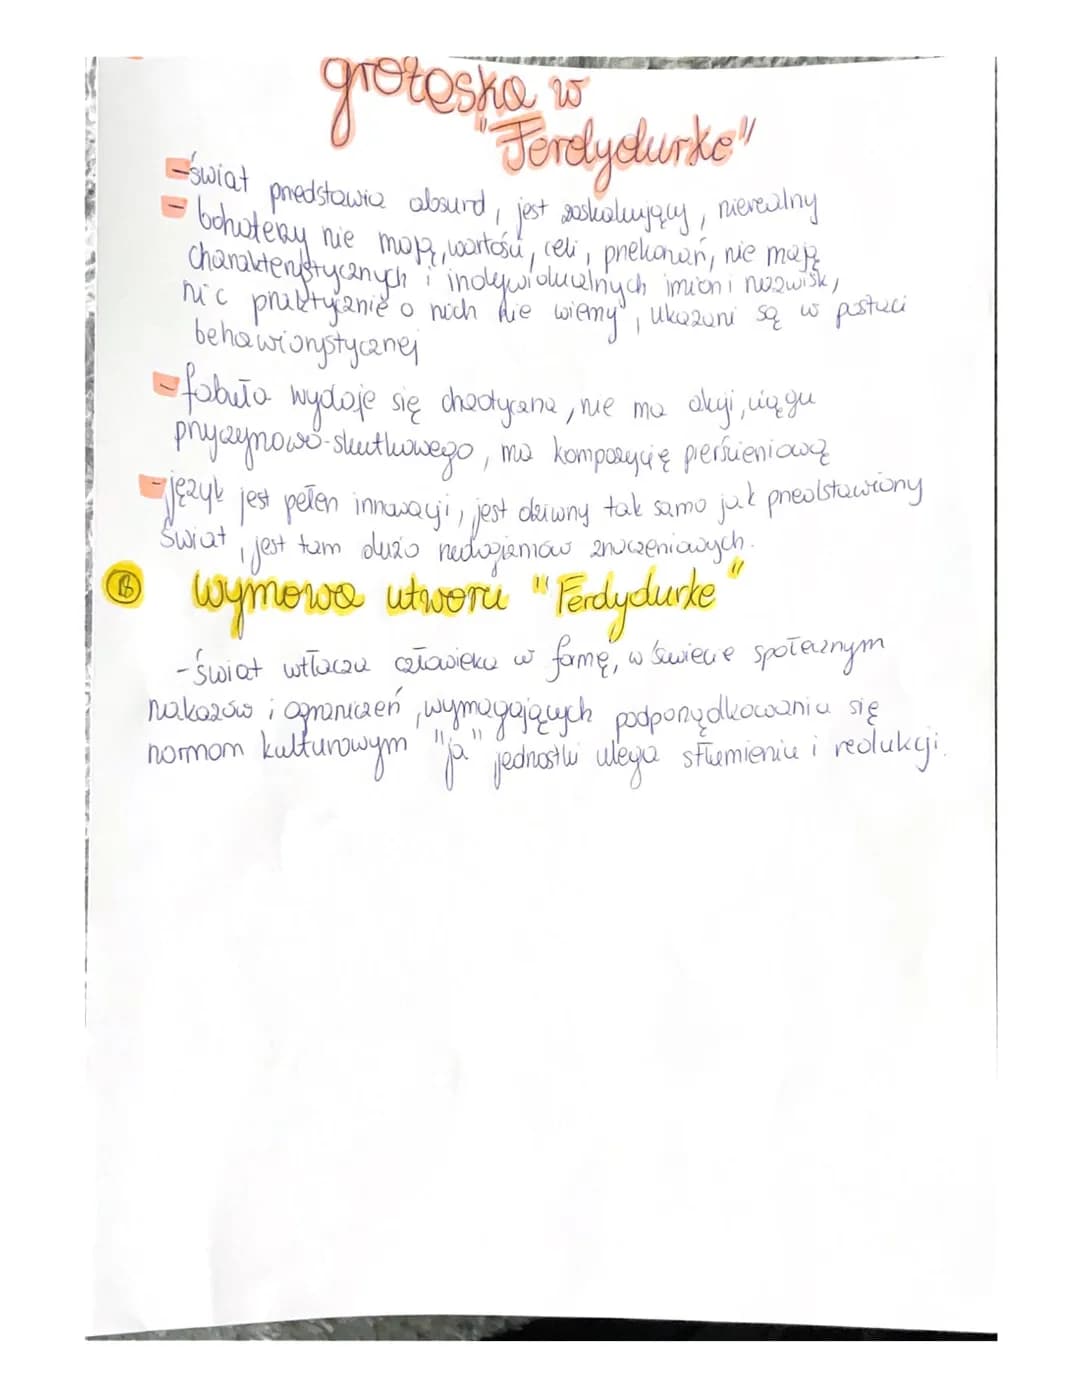 groteska w
"Ferdydurke"
-świat przedstawia absurd, jest zaskakujący, nierealny
- bohaterzy nie mają wartości, celi, przekonań, nie mają
charakterystycznych i indywidualnych imion i nazwisk,
nic praktycznie o nich nie wiemy, ukazani są w postaci
behawiorystycznej
-fabuła wydaje się chaotyczna, nie ma akcji, ciągu
przyczynowo-skutkowego, ma kompozycję pierścieniową
-język jest pełen innowacji, jest dziwny tak samo jak przedstawiony
świat, jest tam dużo znaczeniowych.
wymowa utworu "Ferdydurke"
-świat wtłacza człowieka w formę, w świecie społecznym
nakazów i ograniczeń, wymagających podporządkowania się
normom kulturowym "ja" jednostki ulega stłumieniu i redukcji.